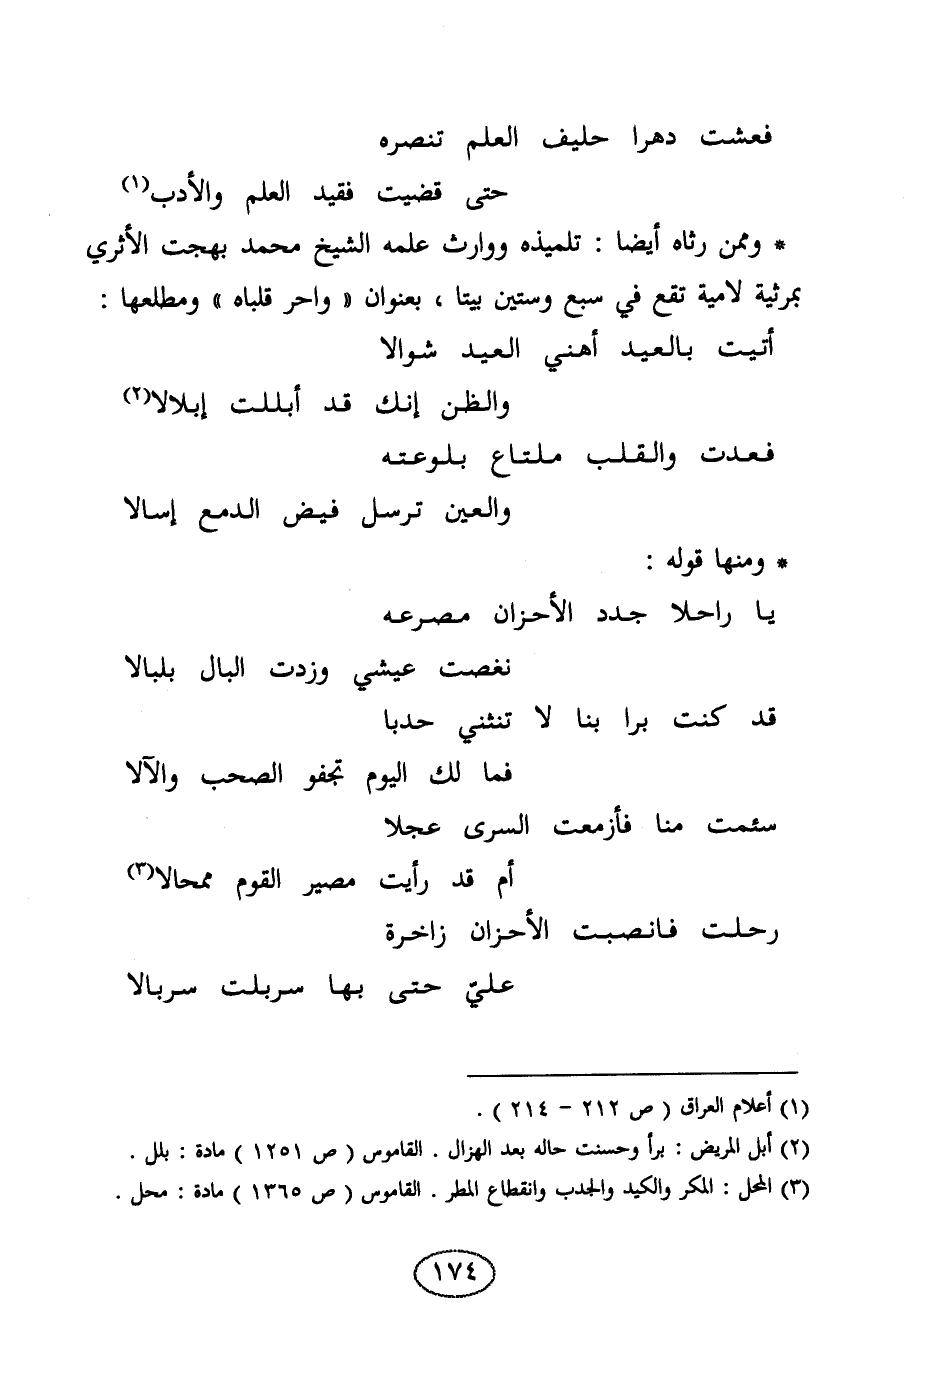 فعشت دهرا حليف العلم تنصره
حتى قضيت فقيد العلم والأدب(١)
* وممن رثاه أيضا : تلميذه ووارث علمه الشيخ محمد بهجت الأثري
بمرثية لامية تقع في سبع وستين بيتا ، بعنوان « واحر قلباه » ومطلعها :
أتيت بالعيد أهني العيد شوالا
والظن إنك قد أبللت إبلالا(٢)
فعدت والقلب ملتاع بلوعته
والعين ترسل فيض الدمع إسالا
* ومنها قوله :
يا راحلا جدد الأحزان مصرعه
نغصت عيشي وزدت البال بلبالا
قد كنت برا بنا لا تنثني حدبا
فما لك اليوم تجفو الصحب والآلا
سئمت منا فأزمعت السرى عجلا
أم قد رأيت مصير القوم ممحالا(٣)
رحلت فانصبت الأحزان زاخرة
عليّ حتى بها سربلت سربالا
(١) أعلام العراق ( ص ٢١٢ – ٢١٤ ) .
(٢) أبل المريض : برأ وحسنت حاله بعد الهزال . القاموس ( ص ١٢٥١ ) مادة : بلل .
(٣) المحل : المكر والكيد والجدب وانقطاع المطر . القاموس ( ص ١٣٦٥ ) مادة : محل .
١٧٤